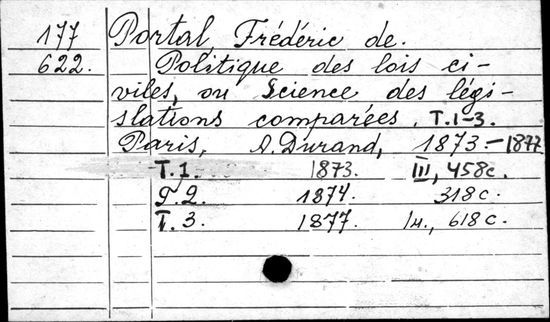 177 Portal, Frédéric de.
622. Politique des lois ci-
viles, ou Science des légi-
slations comparées. T.1-3.
Paris, A. Durand, 1873-1877
T.1. 1873. III, 458c.
T.2. 1874. 318c.
T.3. 1877. 618c.